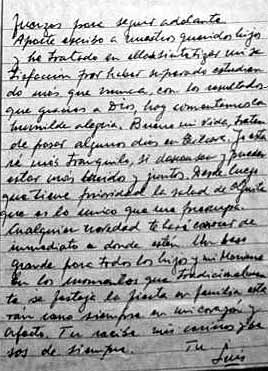 fuerzas para seguir adelante.
Aparte escribo a nuestros queridos hijos
y he tratado en ellas sintetizar mi sa
tisfacción por haber superado estudian
do más que nunca, con los resultados
que gracias a Dios, hoy comentamos con
humilde alegría. Bueno mi vida, traten
de pasar algunos días en
ré más tranquilo, si descansan y pueden
estar más unidos y juntos. Desde luego
que tiene prioridad la salud de
que es lo único que me preocupa.
Cualquier novedad te haré conocer de
inmediato a donde estén. Un beso
grande para todos los hijos y mi
En los momentos que tradicionalmen
te se festeja la fiesta en familia esta
ran como siempre en mi corazón y
afecto. Tu recibe mis cariños y be
sos de siempre. Tu
Luis